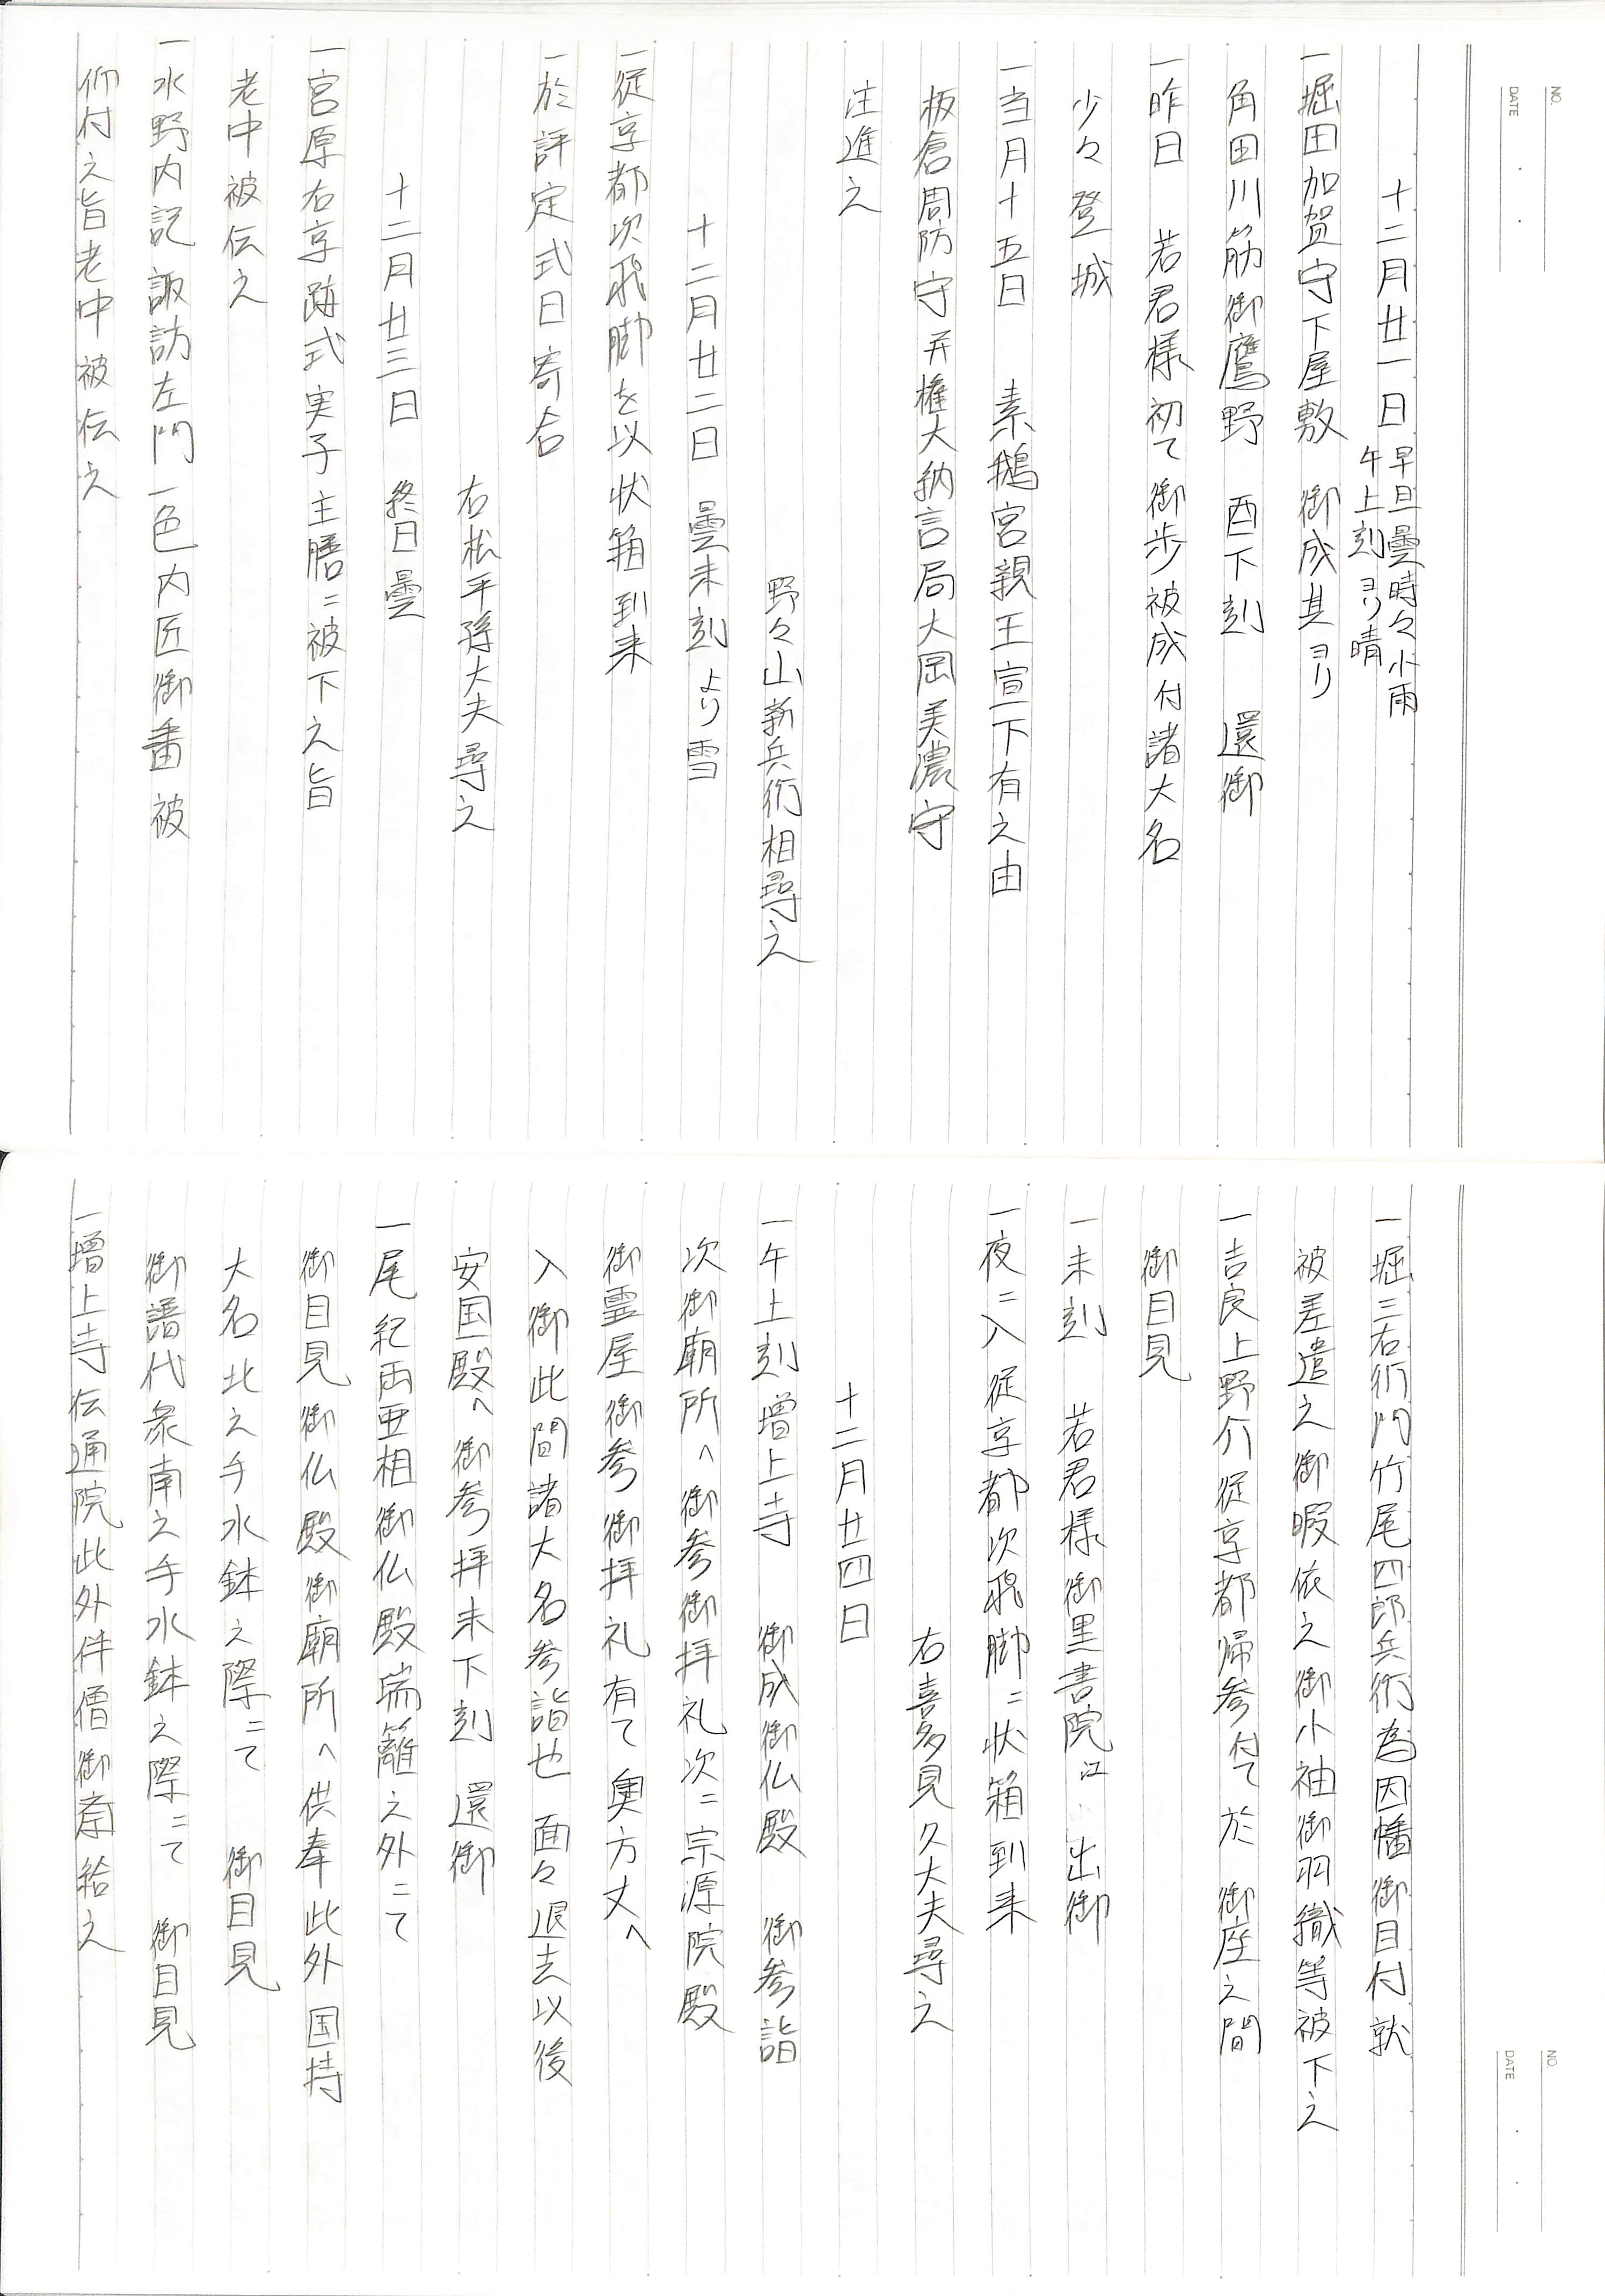 NO.
DATE
十二月廿一日 早旦曇時々小雨
午上刻ヨリ晴
一堀田加賀守下屋敷 御成其ヨリ
角田川筋御鷹野 酉下刻 還御
一昨日 若君様初て御歩被成付諸大名
少々登城
一当月十五日 素鵝宮親王宣下有之由
板倉周防守并権大納言局大岡美濃守
注進之
野々山新兵衛相尋之
十二月廿二日 曇未刻より雪
一従京都次飛脚を以状箱到来
一於評定式日寄合
右松平隼大夫尋之
十二月廿三日 終日曇
一宮原右京跡式実子主膳ニ被下之旨
老中被伝之
一水野内記諏訪左門一色内匠御番被
仰付之旨老中被伝之
NO.
DATE
一堀三右衛門竹尾四郎兵衛為因幡御目付就
被差遣之御暇依之御小袖御羽織等被下之
一吉良上野介従京都帰参付て於 御座之間
御目見
一未刻 若君様御黒書院江 出御
一夜ニ入従京都次飛脚ニ状箱到来
右喜多見久大夫尋之
十二月廿四日
一午上刻増上寺 御成御仏殿 御参詣
次御廟所へ御参御拝礼次ニ宗源院殿
御霊屋御参御拝礼有て奥方丈へ
入御此間諸大名参詣也 面々退去以後
安国殿へ御参拝未下刻 還御
一尾紀両亜相御仏殿瑞籬之外ニて
御目見御仏殿御廟所へ供奉此外国持
大名北之手水鉢之際ニて 御目見
御譜代衆南之手水鉢之際ニて 御目見
一増上寺伝通院此外伴僧御斎給之